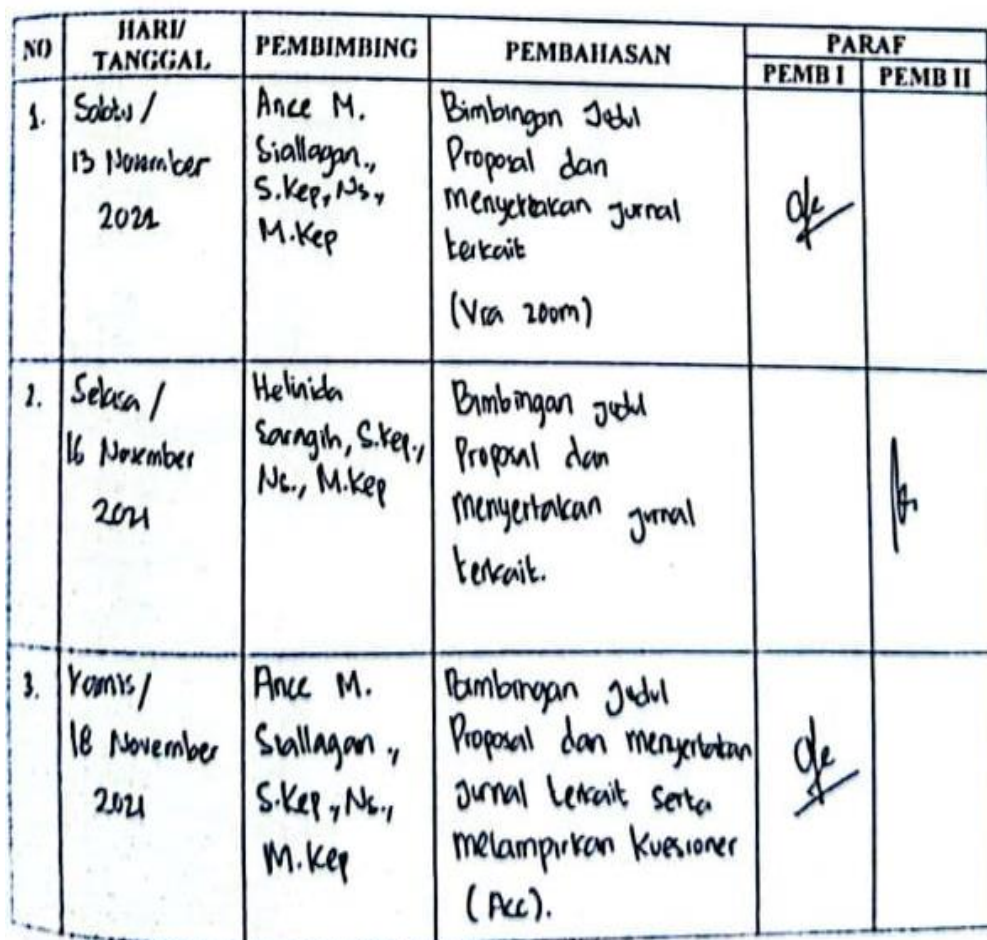 NO HARI/ TANGGAL PEMBIMBING PEMBAHASAN PARAF
PEMB I PEMB II
1. Sabtu / 13 November 2021
Ance M. Siallagan., S.Kep, Ns., M.Kep
Bimbingan Judul
Proposal dan
menyertakan jurnal
terkait
(Via zoom)
2. Selasa / 16 November 2021
Helinida Saragih, S.Kep., Ns., M.Kep
Bimbingan judul
Proposal dan
menyertakan jurnal
terkait.
3. Kamis / 18 November 2021
Ance M. Siallagan ., S.Kep., Ns., M.Kep
Bimbingan judul
Proposal dan menyertakan
jurnal terkait serta
melampirkan kuesioner
(Acc).